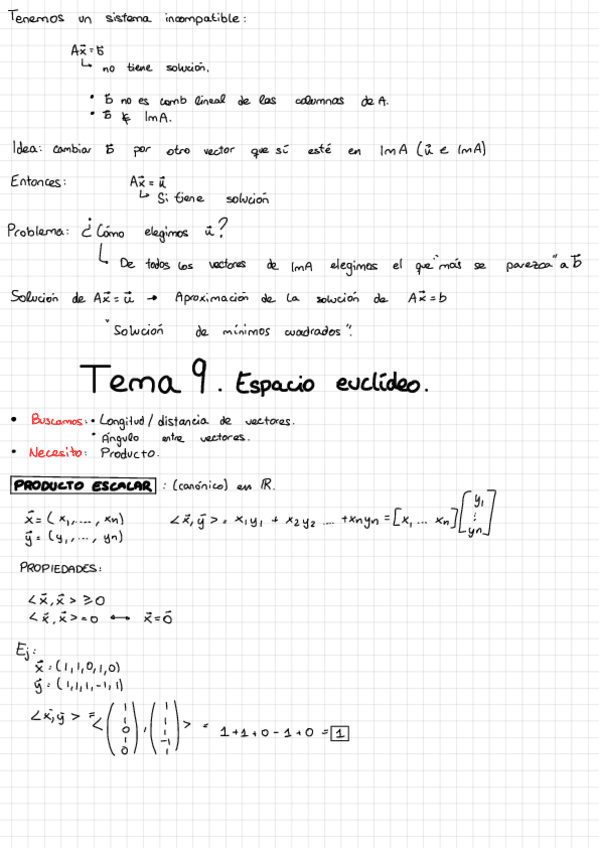 Tenemos un sistema incompatible:
Ax⃗ = b⃗
↳ no tiene solución.
• b⃗ no es comb lineal de las columnas de A.
• b⃗ ∉ ImA.
Idea: cambiar b⃗ por otro vector que sí esté en ImA (u⃗ ∈ ImA)
Entonces: Ax⃗ = u⃗
↳ Si tiene solución
Problema: ¿Cómo elegimos u⃗?
↳ De todos los vectores de ImA elegimos el que "más se parezca" a b⃗
Solución de Ax⃗ = u⃗ → Aproximación de la solución de Ax⃗ = b
"Solución de mínimos cuadrados".
Tema 9. Espacio euclídeo.
• Buscamos: • Longitud / distancia de vectores.
• Ángulo entre vectores.
• Necesito: Producto.
PRODUCTO ESCALAR : (canónico) en ℝ.
x⃗ = (x₁, ..., xn) <x⃗, y⃗> = x₁y₁ + x₂y₂ .... + xnyn = [x₁ ... xn] [y₁ ⋮ yn]
y⃗ = (y₁, ..., yn)
PROPIEDADES:
<x⃗, x⃗> ≥ 0
<x⃗, x⃗> = 0 ↔ x⃗ = 0⃗
Ej:
x⃗ = (1,1,0,1,0)
y⃗ = (1,1,1,-1,1)
<x⃗, y⃗> = < (1 1 0 1 0), (1 1 1 -1 1) > = 1+1+0-1+0 = 1